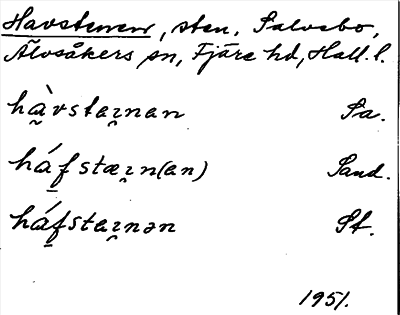 Havstenen, sten, Salvebo,
Älvsåkers sn, Fjäre hd, Hall. l.
hàvstai̯nan Sa.
háfstæi̯n(an) Sand.
háfstai̯nən St.
1951.